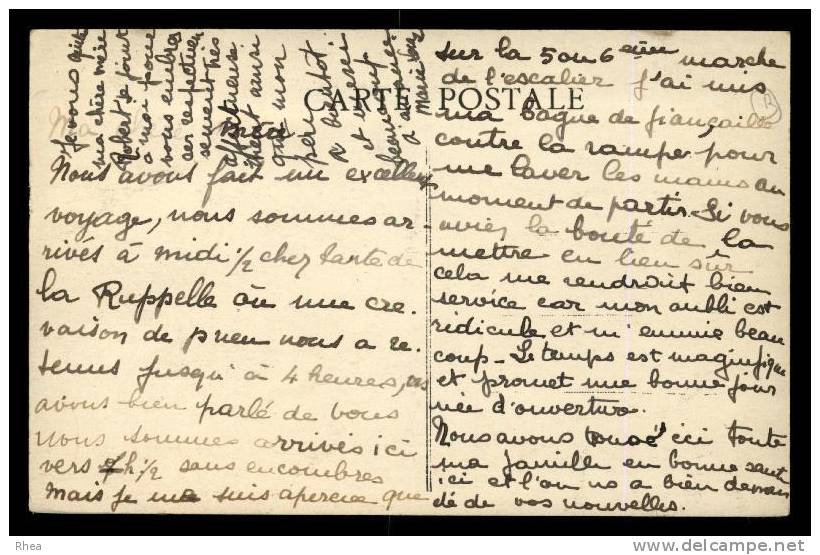 CARTE POSTALE
Nous avons fait un excellent
voyage, nous sommes ar-
rivés à midi 1/2 chez tante de
la Ruppelle où une cre-
vaison de pneu nous a re-
tenus jusqu'à 4 heures, ns
avons bien parlé de vous
nous sommes arrivés ici
vers 7h 1/2 sans encombres
Mais je me suis aperçue que
sur la 5 ou 6 ème marche
de l'escalier j'ai mis
ma bague de fiançailles
contre la rampe pour
me laver les mains au
moment de partir. Si vous
aviez la bonté de la
mettre en lieu sûr
cela me rendrait bien
service car mon oubli est
ridicule et m'ennuie beau
coup - Le temps est magnifique
et promet une bonne jour
née d'ouverture.
Nous avons trouvé ici toute
ma famille en bonne santé
ici et l'on ns a bien deman
dé de vos nouvelles.
ma chère mère
Robert se joint
à moi pour
vous embras
ser respectueu
sement très
affectueuse
ainsi
que mon
à bientôt
et merci
beaucoup
à
Rhea
DELCAMPE.NET